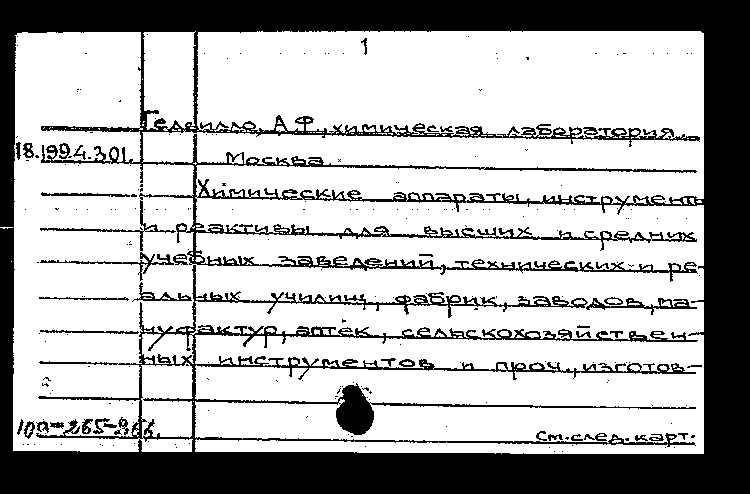 1
А.Ф., химическая лаборатория.
18.199.4.301.
Москва.
Химические аппараты, инструменты
и реактивы для высших и средних
учебных заведений, технических и ре-
альных училищ, фабрик, заводов, ма-
нуфактур, аптек, сельскохозяйствен-
ных инструментов и проч., изготов-
109-265-
см.след.карт.